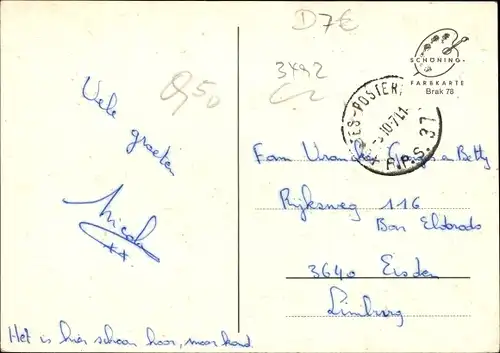 D7€
3492
0,50
SCHÖNING
FARBKARTE
Brak 78
-POSTER
10-71
P.P.S. 37
Vele
groeten
Nicole
Het is hier schoon hoor, maar koud.
Fam Vrancken Georges en Betty
Rijksweg 116
Bar Eldorado
3640 Eisden
Limburg